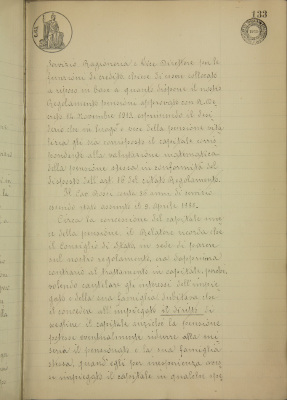 133
Savino, Ragioniere e Vice Direttore per le
funzioni di credito, chiese di venir collocato
a riposo in base a quanto dispone il nostro
Regolamento pensioni approvato con R. D.
14 Novembre 1912 esternando il desi-
derio che in luogo e vece della pensione vita-
lizia gli sia corrisposto il capitale corri-
spondente alla valutazione matematica
della pensione stessa in conformità del
disposto dell'art. del citato Regolamento.
Il Cav. anni di
essendo stato assunto il 9 Aprile
Circa la concessione del capitale invece
della pensione, il Relatore ricorda che
il Consiglio di Stato in sede di parere
sul nostro regolamento, sia dapprima
contrario al trattamento in capitale,
volendo cautelare gli interessi dell'impie-
gato e della sua famiglia
il concedere all'impiegato il diritto di
esigere il capitale anziché la pensione
potesse eventualmente ridurre alla mi-
seria il pensionato e la sua famiglia
stessa, quand'egli per inesperienza
o impiegato il capitale in qualche spe-